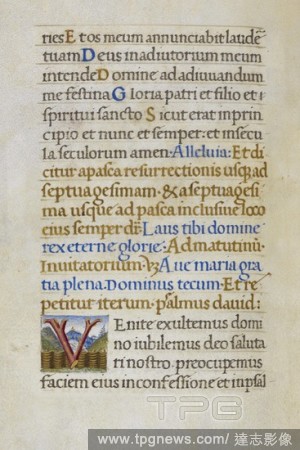 ries Et os meum annunciabit laudē
tuam Deus in adiutorium meum
intende Domine ad adiuuandum
me festina Gloria patri et filio et
spiritui sancto Sicut erat in prin
cipio et nunc et semper: et in secu
la seculorum amen. Alleluia: Et di
citur a pasca resurrectionis usq; ad
septuagesimam. & a septuagesi
ma usque ad pasca inclusiue loco
eius semper dr̄: Laus tibi domine
rex eterne glorie: Ad matutinū.
Inuitatorium. Aue maria gra
tia plena. Dominus tecum. Et re
petitur iterum. psalmus dauid:
Venite exultemus domi
no iubilemus deo saluta
ri nostro. preocupemus
faciem eius in confessione et in psal
TPG
www.tpgnews.com/達志影像